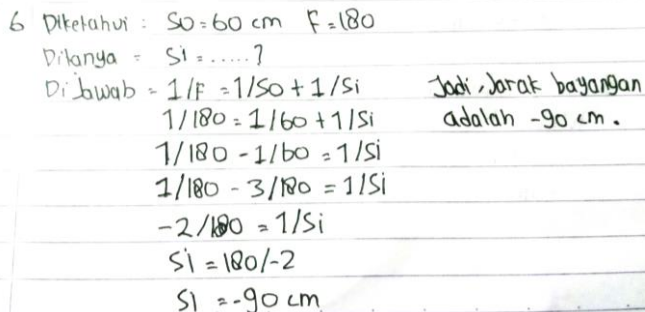 6 Diketahui : So = 60 cm F = 180
Ditanya = Si = ..... ?
Di Jawab = 1/F = 1/So + 1/Si
1/180 = 1/60 + 1/Si
1/180 - 1/60 = 1/Si
1/180 - 3/180 = 1/Si
-2/180 = 1/Si
Si = 180/-2
Si = -90 cm
Jadi, Jarak bayangan
adalah -90 cm.